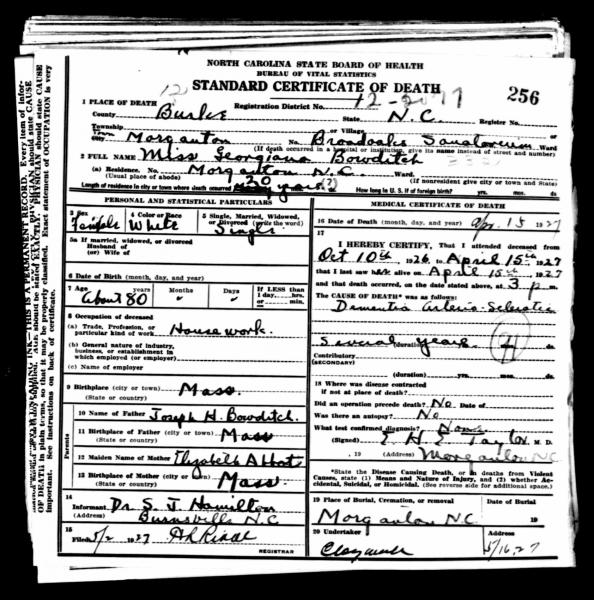 NORTH CAROLINA STATE BOARD OF HEALTH
BUREAU OF VITAL STATISTICS
STANDARD CERTIFICATE OF DEATH
256
1 PLACE OF DEATH
Registration District No. 12-20
County Burke State N.C. Register No.
Township or Village
Town Morganton No. Broadoaks Ward
City (If death occurred in a hospital or institution, give its name instead of street and number)
2 FULL NAME Miss Georgiana Bowditch
(a) Residence. No. Morganton N.C. Ward
(Usual place of abode) (If nonresident give city or town and State)
Length of residence in city or town where death occurred 20 years (?) How long in U. S. if of foreign birth? yrs. mos. ds.
PERSONAL AND STATISTICAL PARTICULARS
3 Sex Female
4 Color or Race White
5 Single, Married, Widowed, or Divorced (write the word) Single
5a If married, widowed, or divorced
Husband of
(or) Wife of
6 Date of Birth (month, day, and year)
7 Age About 80 years Months Days If LESS than 1 day, hrs. or min.
8 Occupation of deceased
(a) Trade, Profession, or particular kind of work. House work.
(b) General nature of industry, business, or establishment in which employed (or employer)
(c) Name of employer
9 Birthplace (city or town) Mass.
(State or country)
Parents
10 Name of Father Joseph H. Bowditch.
11 Birthplace of Father (city or town) Mass
(State or country)
12 Maiden Name of Mother Elizabeth Abbot
13 Birthplace of Mother (city or town) Mass.
(State or country)
14
Informant Dr. S. J. Hamilton
(Address) Burnsville N.C.
15
Filed 5/2 1927
REGISTRAR
MEDICAL CERTIFICATE OF DEATH
16 Date of Death (month, day, and year) Apr. 15 1927
17
I HEREBY CERTIFY, That I attended deceased from
Oct 10th, 1926, to April 15th 1927
that I last saw h alive on April 15th, 1927
and that death occurred, on the date stated above, at 3 p. m.
The CAUSE OF DEATH* was as follows:
Dementia Arterio-Sclerotic
Several (duration) years mos. ds.
Contributory
(SECONDARY)
(duration) yrs. mos. ds.
18 Where was disease contracted
if not at place of death?
Did an operation precede death? No Date of
Was there an autopsy? No
What test confirmed diagnosis? None
(Signed) E. H. E. Taylor M. D.
, 19 (Address) Morganton NC
*State the Disease Causing Death, or in deaths from Violent Causes, state (1) Means and Nature of Injury, and (2) whether Accidental, Suicidal, or Homicidal. (See reverse side for additional space.)
19 Place of Burial, Cremation, or removal Date of Burial
Morganton N.C. 19
20 Undertaker Address
5/16.27